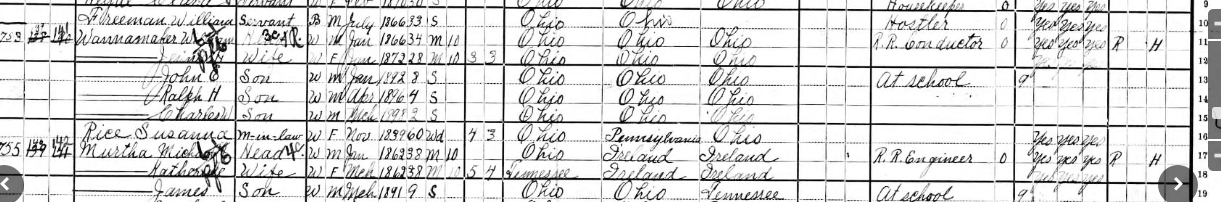 Servant W F 1830 S Ohio Ohio Ohio Housekeeper 0 yes yes yes 9
Freeman William Servant B M July 1866 33 S Ohio Ohio Hostler 0 yes yes yes
753 Wannamaker W M Jan 1866 34 M 10 Ohio Ohio Ohio R.R. Conductor 0 yes yes yes R H 11
Wife W F Jun 1872 28 M 10 3 3 Ohio Ohio Ohio yes yes yes 12
John E Son W M Jan S Ohio Ohio Ohio At school 9 13
Ralph H Son W M Apr 1896 4 S Ohio Ohio Ohio 14
Charles W Son W M Mch S Ohio Ohio Ohio 15
Rice Susanna M-in-law W F Nov. 1839 60 Wd 4 3 Ohio Pennsylvania Ohio yes yes yes 16
755 Murtha Michael Head W M Jan 1862 38 M 10 Ohio Ireland Ireland R.R. Engineer 0 yes yes yes R H 17
Katherine Wife W F Mch 1862 38 M 10 5 4 Tennessee Ireland Ireland yes yes yes 18
James Son W M Mch 1891 9 S Ohio Ohio Tennessee At school 9 19